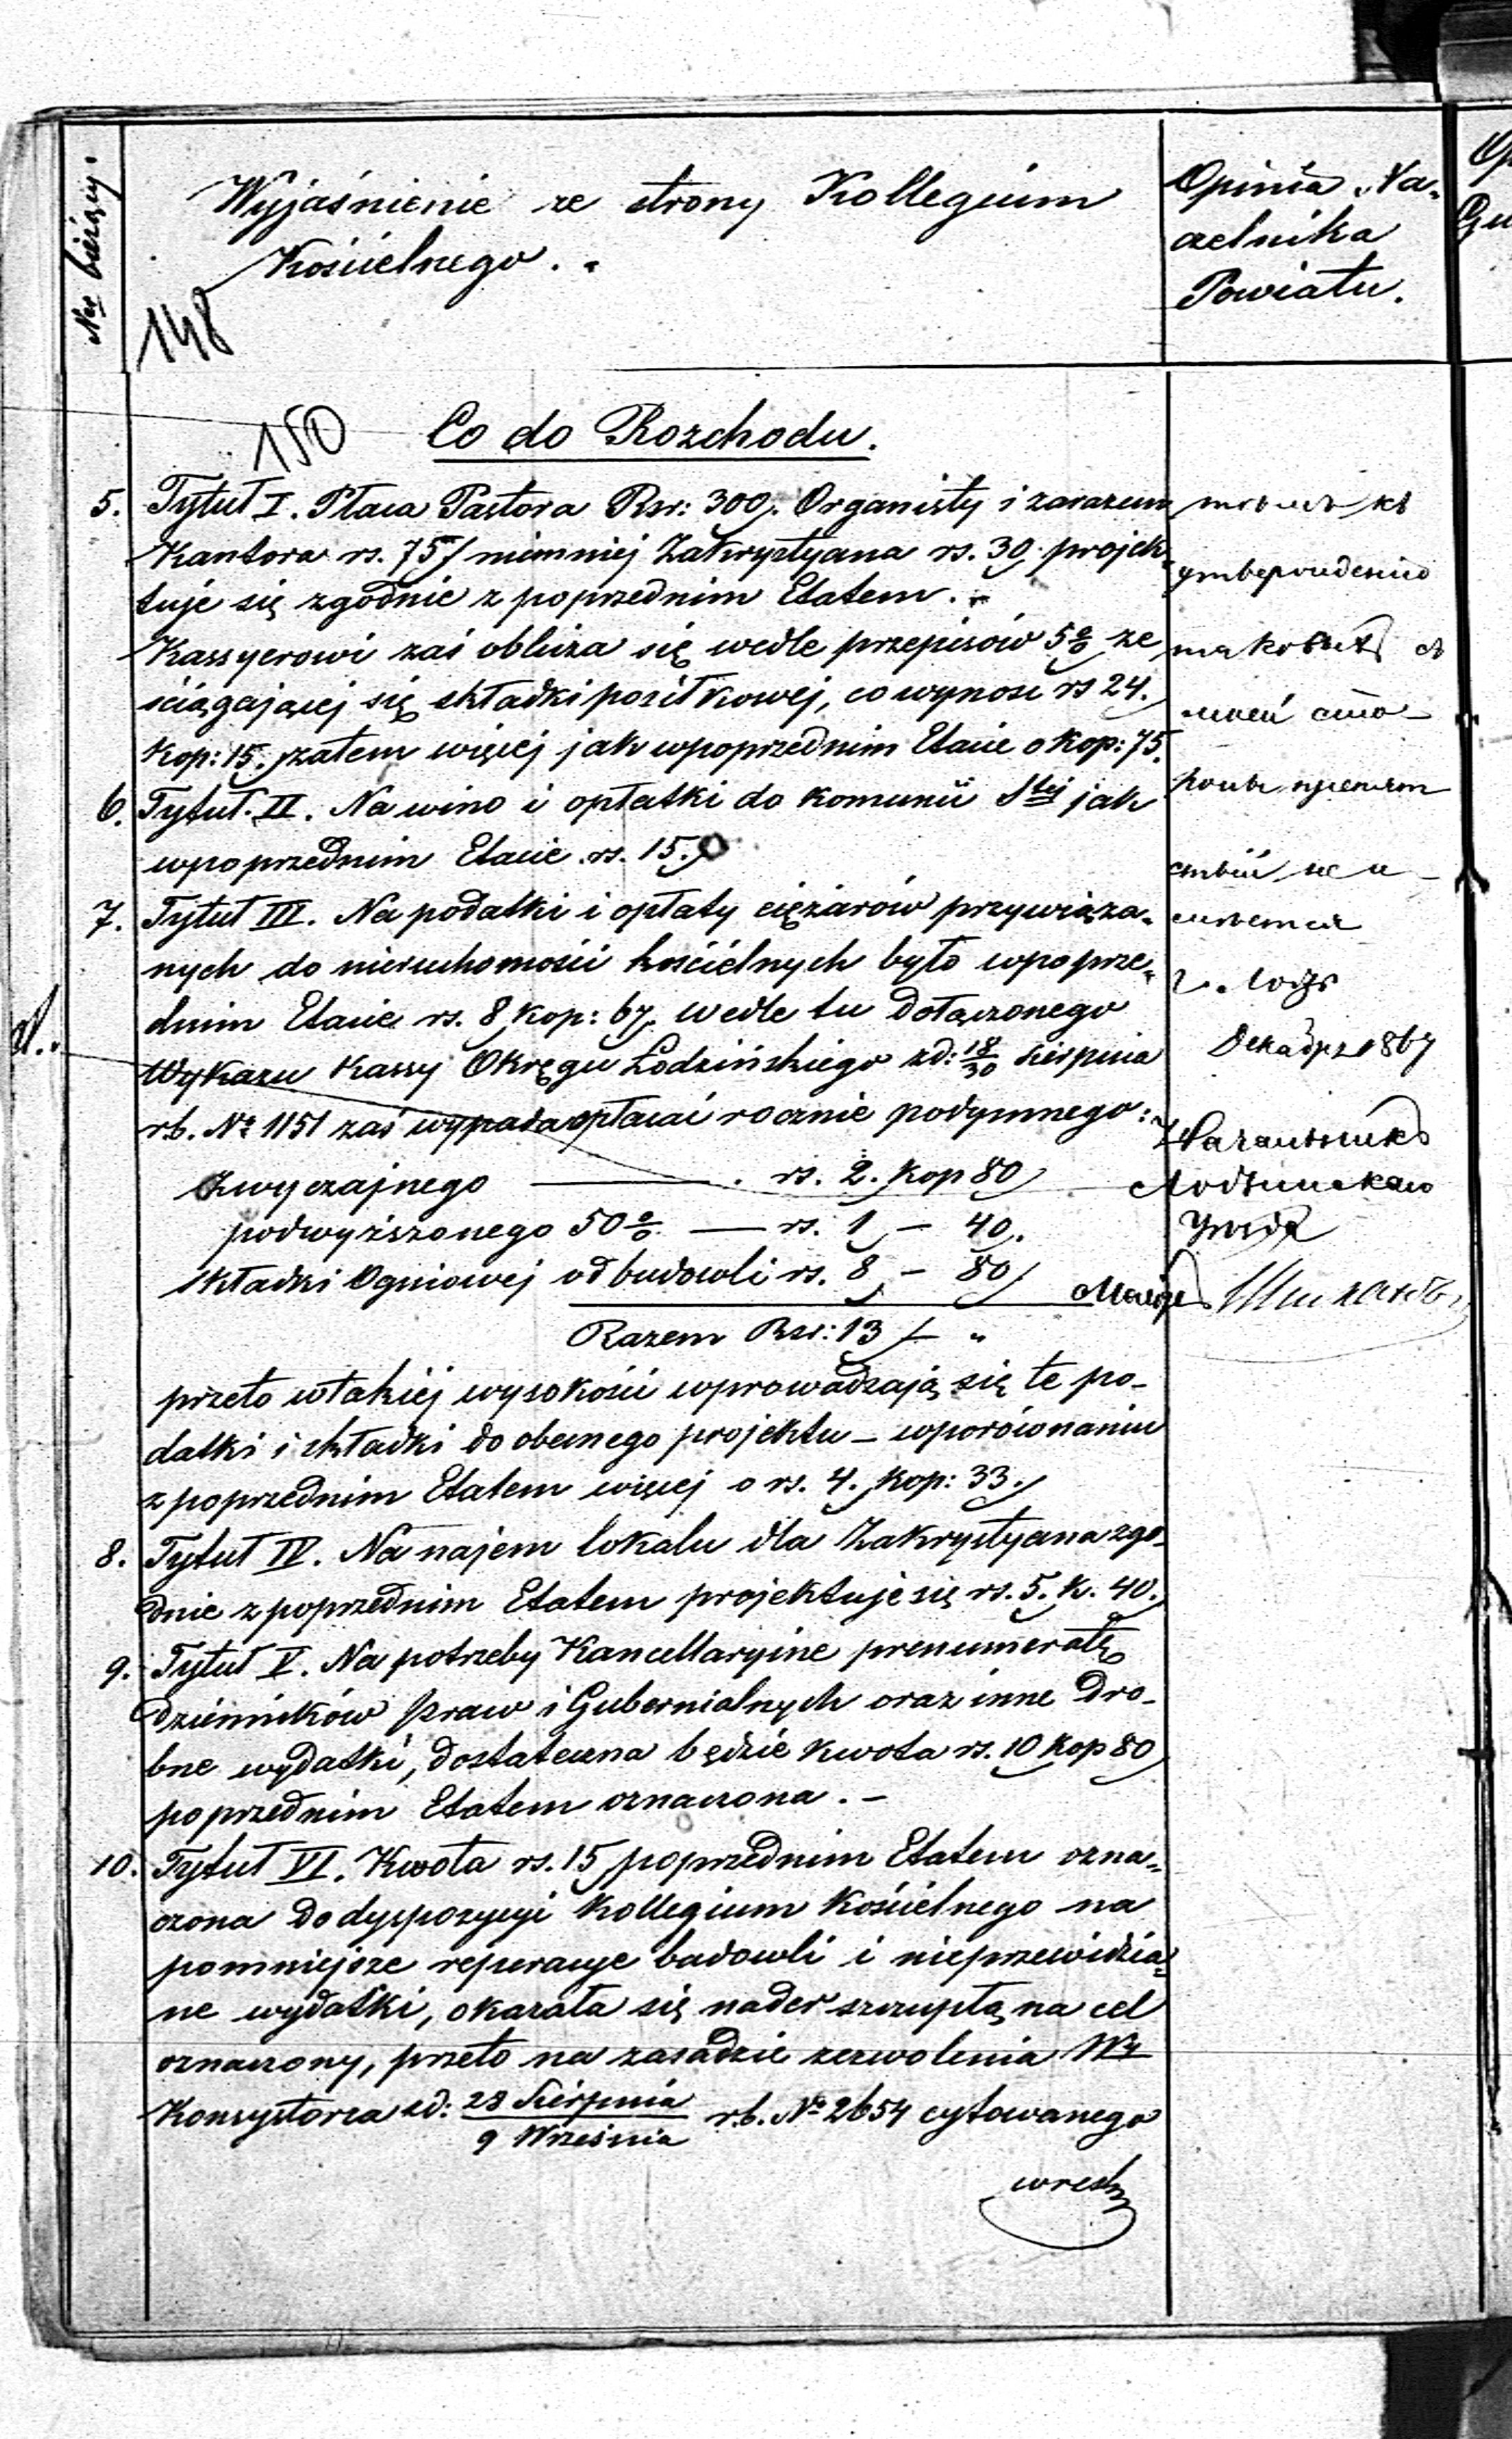 Nr bieżący.
Wyjaśnienie ze strony Kollegium
Kościelnego.
Opinia Na-
czelnika
Powiatu.
148
150
Co do Rozchodu.
5. Tytuł I. Płaca Pastora Rsr: 300. Organisty i zarazem
Kantora rs. 75, niemniej Zakrystyana rs. 30. projek-
tuje się zgodnie z poprzednim Etatem. -
Kassyerowi zaś oblicza się wedle przepisów 5% ze
ściągającej się składki posiłkowej, co wynosi rs 24.
Kop: 15. zatem więcej jak wpoprzednim Etacie o Kop: 75.
6. Tytuł. II. Na wino i opłatki do komunii Stej jak
wpoprzednim Etacie rs. 15.
7. Tytuł III. Na podatki i opłaty ciężarów przywiąza-
nych do nieruchomości kościelnych było wpoprze-
dnim Etacie rs. 8 Kop: 67. wedle tu dołączonego
Wykazu Kassy Okręgu Łodzińskiego zd: 18/30 sierpnia
rb. No 1151 zaś wypada opłacać rocznie podymnego:
Zwyczajnego — rs. 2. Kop 80
podwyższonego 50% — rs. 1 — 40.
składki Ogniowej od budowli rs. 8 — 80
Razem Rsr: 13 — "
przeto wtakiej wysokości wprowadzają się te po-
datki i składki do obecnego projektu - wporównaniu
z poprzednim Etatem więcej o rs. 4. Kop: 33.
8. Tytuł IV. Na najem lokalu dla Zakrystyana zgo-
dnie z poprzednim Etatem projektuje się rs. 5. K. 40.
9. Tytuł V. Na potrzeby Kancellaryine prenumeratę
dzienników Praw i Gubernialnych oraz inne dro-
bne wydatki, dostateczna będzie kwota rs. 10 Kop 80
poprzednim Etatem oznaczona. -
10. Tytuł VI. Kwota rs. 15 poprzednim Etatem ozna-
czona do dyspozycyi Kollegium Kościelnego na
pomniejsze reperacye budowli i nieprzewidzia-
ne wydatki, okazała się nader szczupłą na cel
oznaczony, przeto na zasadzie zezwolenia
Konsystorza zd: 28 Sierpnia / 9 Września rb. No 2654 cytowanego
къ
утвержденію
съ
моей сто-
роны препят
ствій не и
г. Лодзь
Декабря 1867
Начальникъ
Лодзинскаго
Уѣзда
Маіоръ